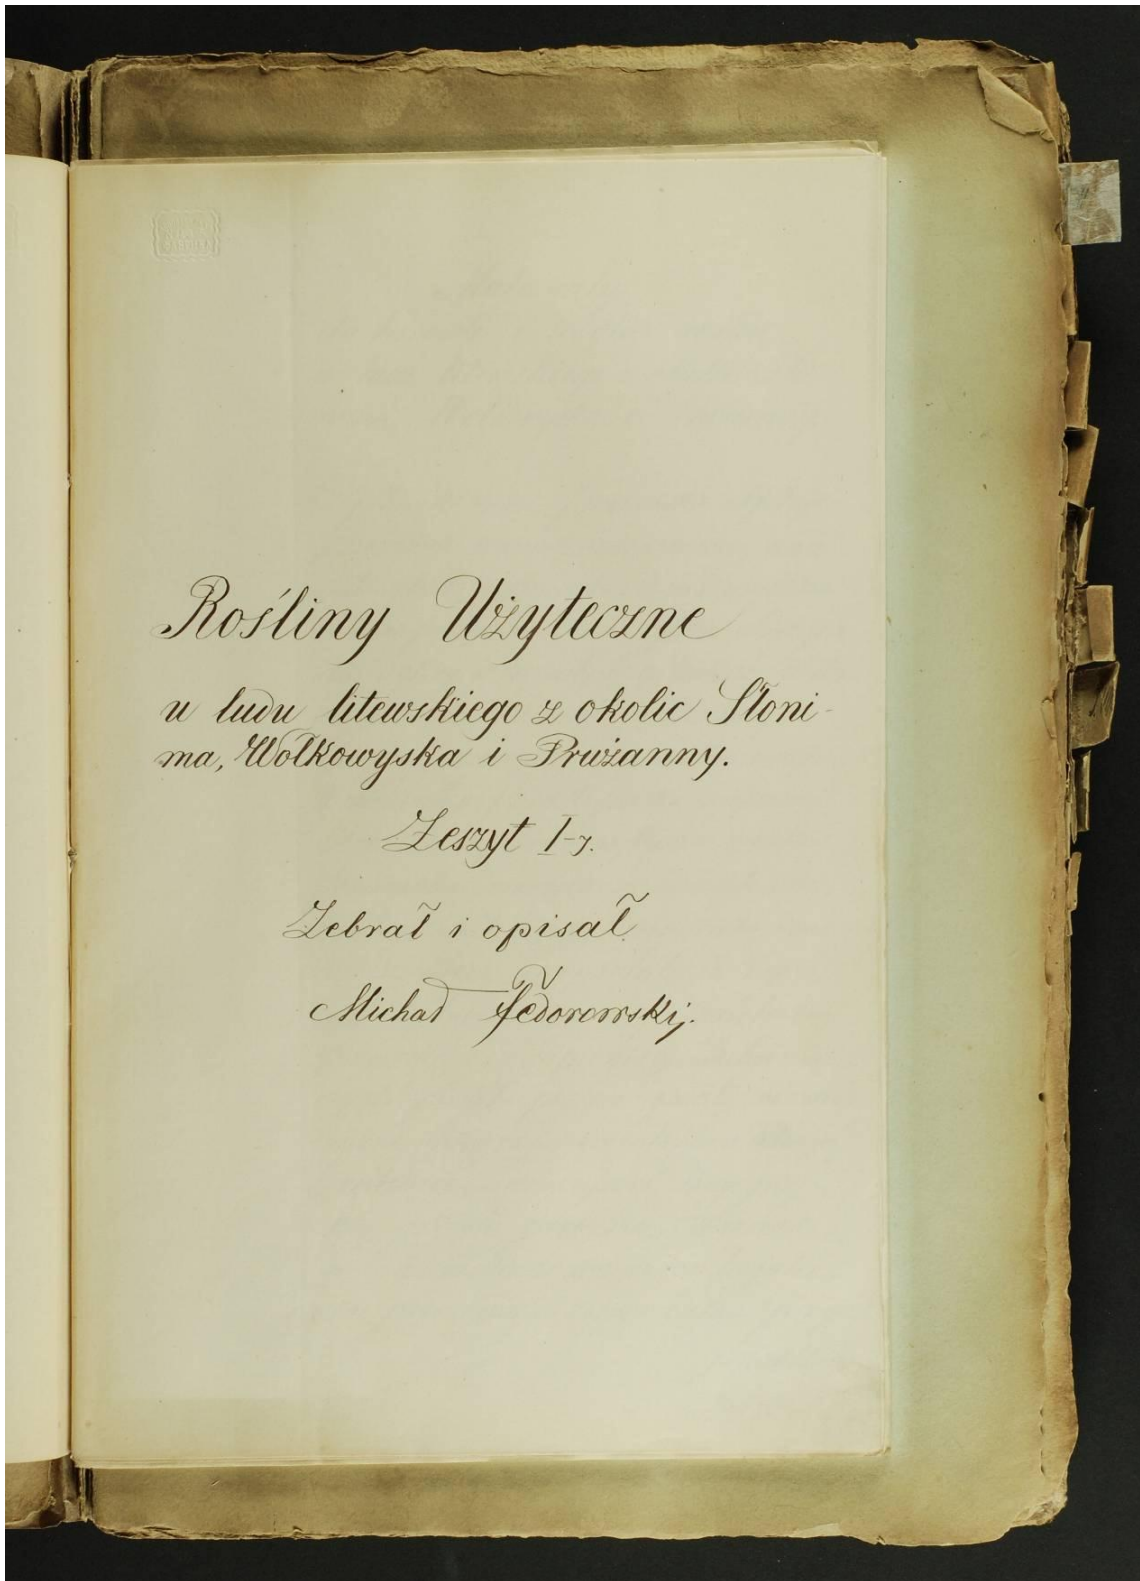 Rośliny Użyteczne
u ludu litewskiego z okolic Słoni-
ma, Wołkowyska i Prużanny.
Zeszyt I-y.
Zebrał i opisał
Michał Fedorowskij.